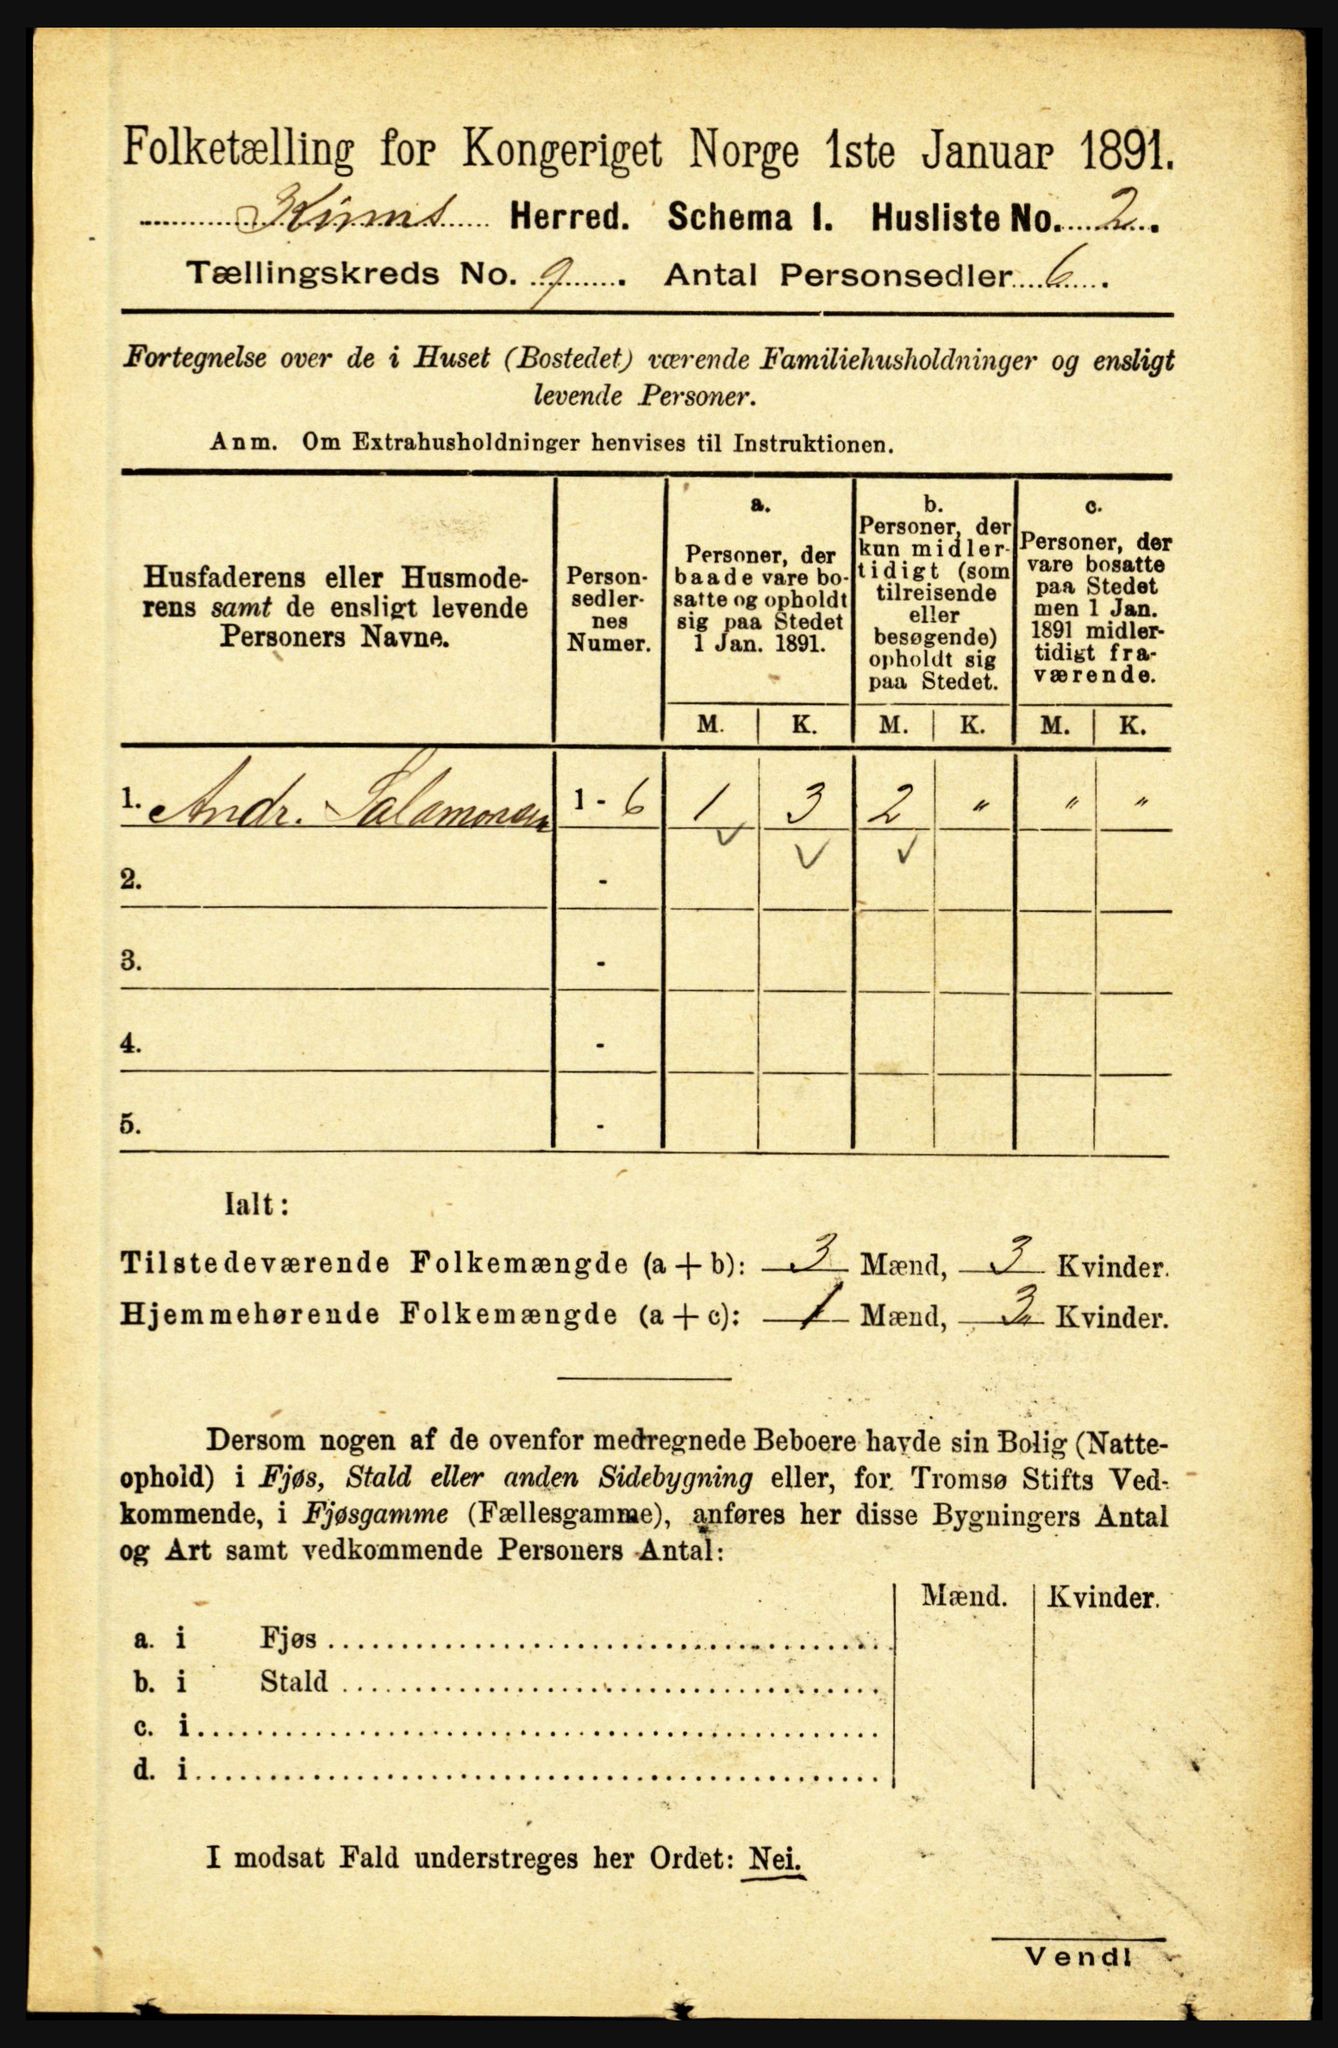 Folketælling for Kongeriget Norge 1ste Januar 1891.
Kinns Herred. Schema I. Husliste No. 2.
Tællingskreds No. 9. Antal Personsedler 6.
Fortegnelse over de i Huset (Bostedet) værende Familiehusholdninger og ensligt
levende Personer.
Anm. Om Extrahusholdninger henvises til Instruktionen.
Husfaderens eller Husmode-
rens samt de ensligt levende
Personers Navne.
Person-
sedler-
nes
Numer.
a.
Personer, der
baade vare bo-
satte og opholdt
sig paa Stedet
1 Jan. 1891.
b.
Personer, der
kun midler-
tidigt (som
tilreisende
eller
besøgende)
opholdt sig
paa Stedet.
c.
Personer, der
vare bosatte
paa Stedet
men 1 Jan.
1891 midler-
tidigt fra-
værende.
M. K. M. K. M. K.
1. Andr. Salamonsen 1 - 6 1 3 2 " " "
2. -
3. -
4. -
5. -
Ialt:
Tilstedeværende Folkemængde (a + b): 3 Mænd, 3 Kvinder.
Hjemmehørende Folkemængde (a + c): 1 Mænd, 3 Kvinder.
Dersom nogen af de ovenfor medregnede Beboere havde sin Bolig (Natte-
ophold) i Fjøs, Stald eller anden Sidebygning eller, for Tromsø Stifts Ved-
kommende, i Fjøsgamme (Fællesgamme), anføres her disse Bygningers Antal
og Art samt vedkommende Personers Antal:
Mænd. Kvinder.
a. i Fjøs
b. i Stald
c. i
d. i
I modsat Fald understreges her Ordet: Nei.
Vend!